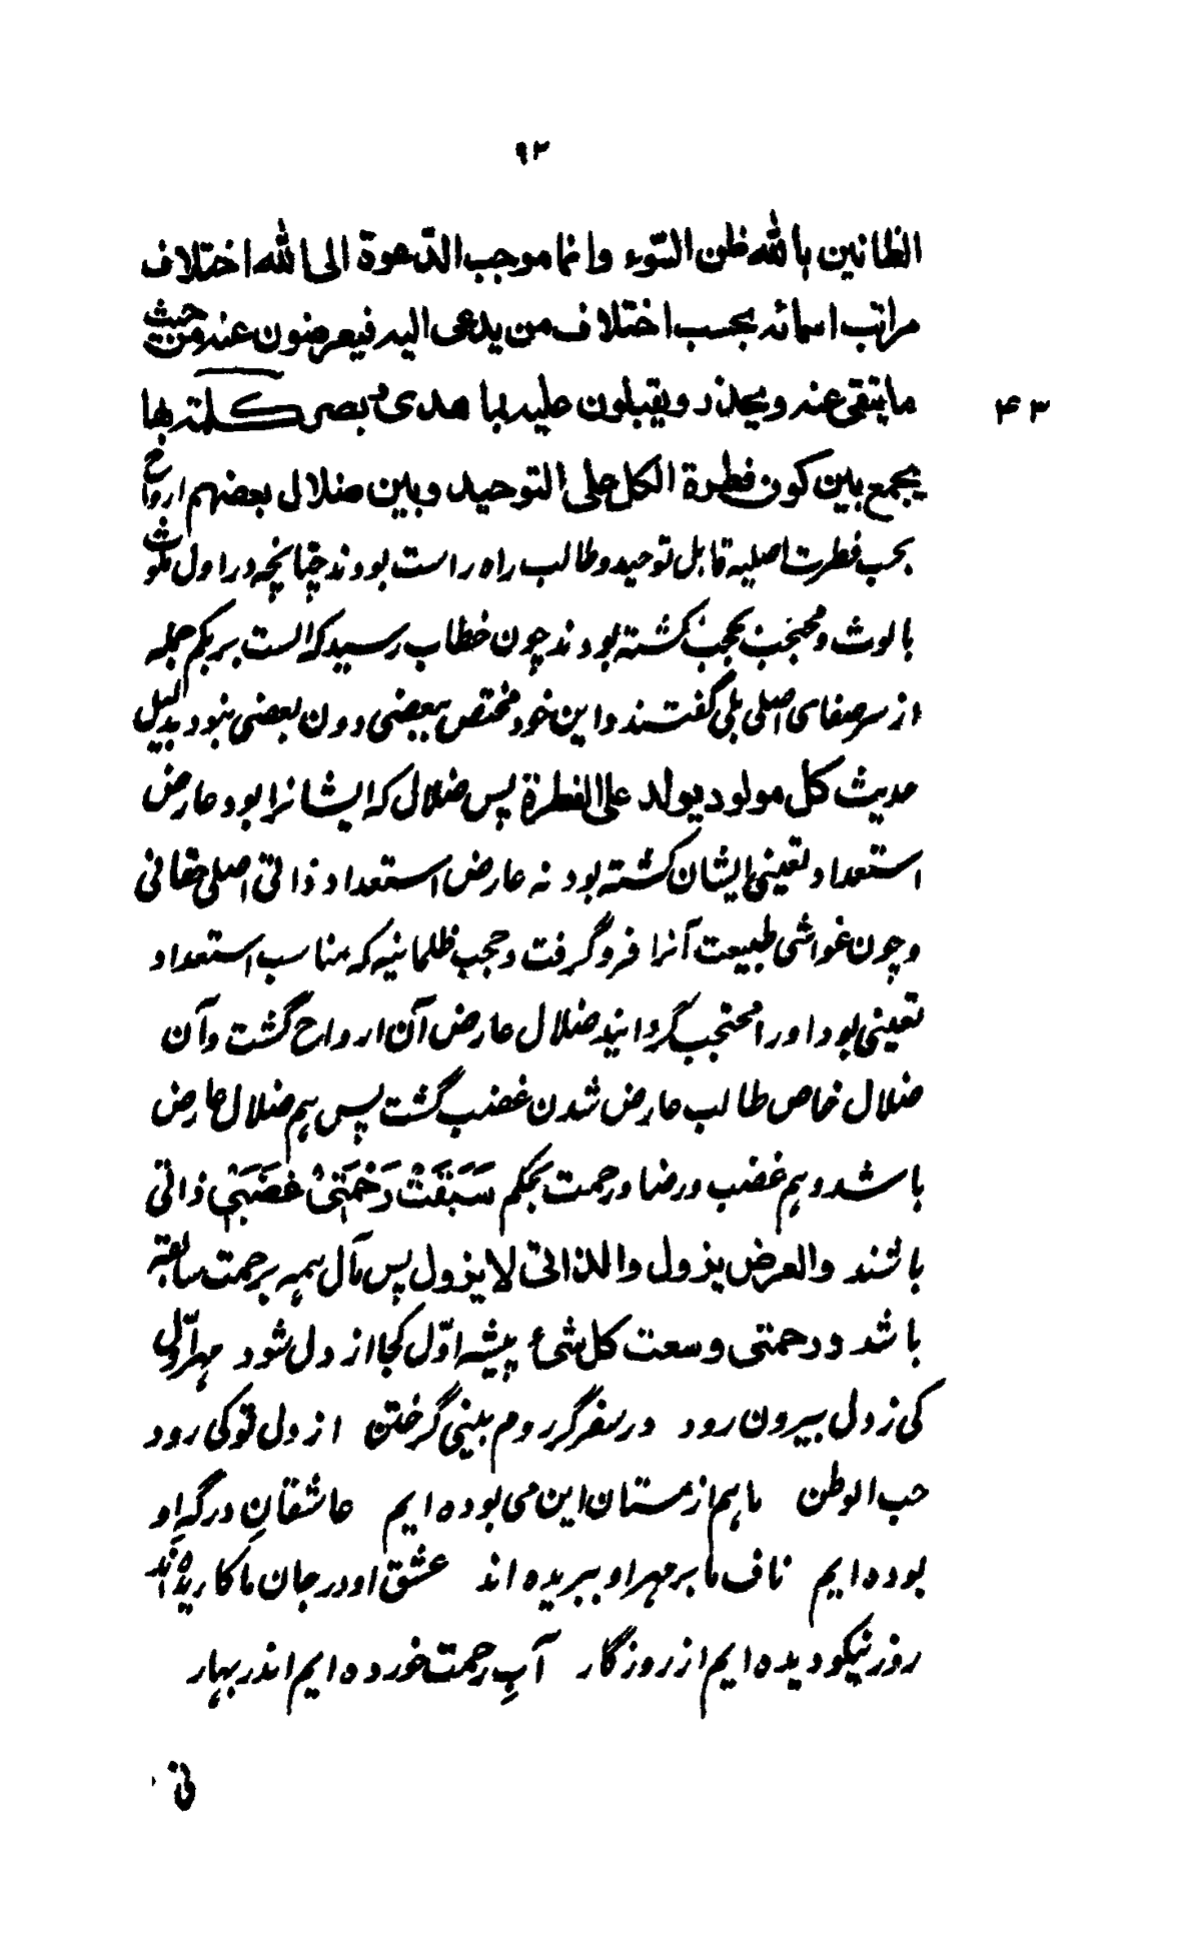 ۹۲
الظانین بالله ظن السّوء وانما موجب الدّعوة الی الله اختلاف
مراتب اسمائه بحسب اختلاف من یدعی الیه فیعرضون عنه من حیث
ما یتقی عنه ویحذر ویقبلون علیه بما هدی وبصر کلمة بها
۴۳
یجمع بین کون فطرة الکل علی التوحید وبین ضلال بعضهم ارواح
بحسب فطرت اصلیه قابل توحید و طالب راه راست بودند چنانچه در اول ملوث
بالوث و محتجب بحجب نگشته بودند چون خطاب رسید که الست بربکم جمله
از سر صفای اصلی بلی گفتند و این خود مختص ببعضی دون بعضی نبود بدلیل
حدیث کل مولود یولد علی الفطرة پس ضلال که ایشانرا بود عارض
استعداد تعینی ایشان گشته بود نه عارض استعداد ذاتی اصلی حقانی
و چون غواشی طبیعت آنرا فرو گرفت و حجب ظلمانیه که مناسب استعداد
تعینی بود اورا محتجب گردانید ضلال عارض آن ارواح گشت و آن
ضلال خاص طالب عارض شدن غضب گشت پس هم ضلال عارض
باشد و هم غضب و رضا و رحمت بحکم سَبَقَتْ رَحْمَتِیْ غَضَبَیْ ذاتی
باشند والعرض یزول والذاتی لایزول پس مآل همه برحمت سابقه
باشد ورحمتی وسعت کل شیء پیشه اوّل کجا از دل شود مهر اوّل
کی ز دل بیرون رود در سفر گر روم بینی گر ختن از دل تو کی رود
حب الوطن ما هم از مستان این می بوده ایم عاشقانِ درگهِ او
بوده ایم ناف ما بر مهر او ببریده اند عشق او در جان ما کاریده اند
روز نیکو دیده ایم از روزگار آبِ رحمت خورده ایم اندر بهار
فی